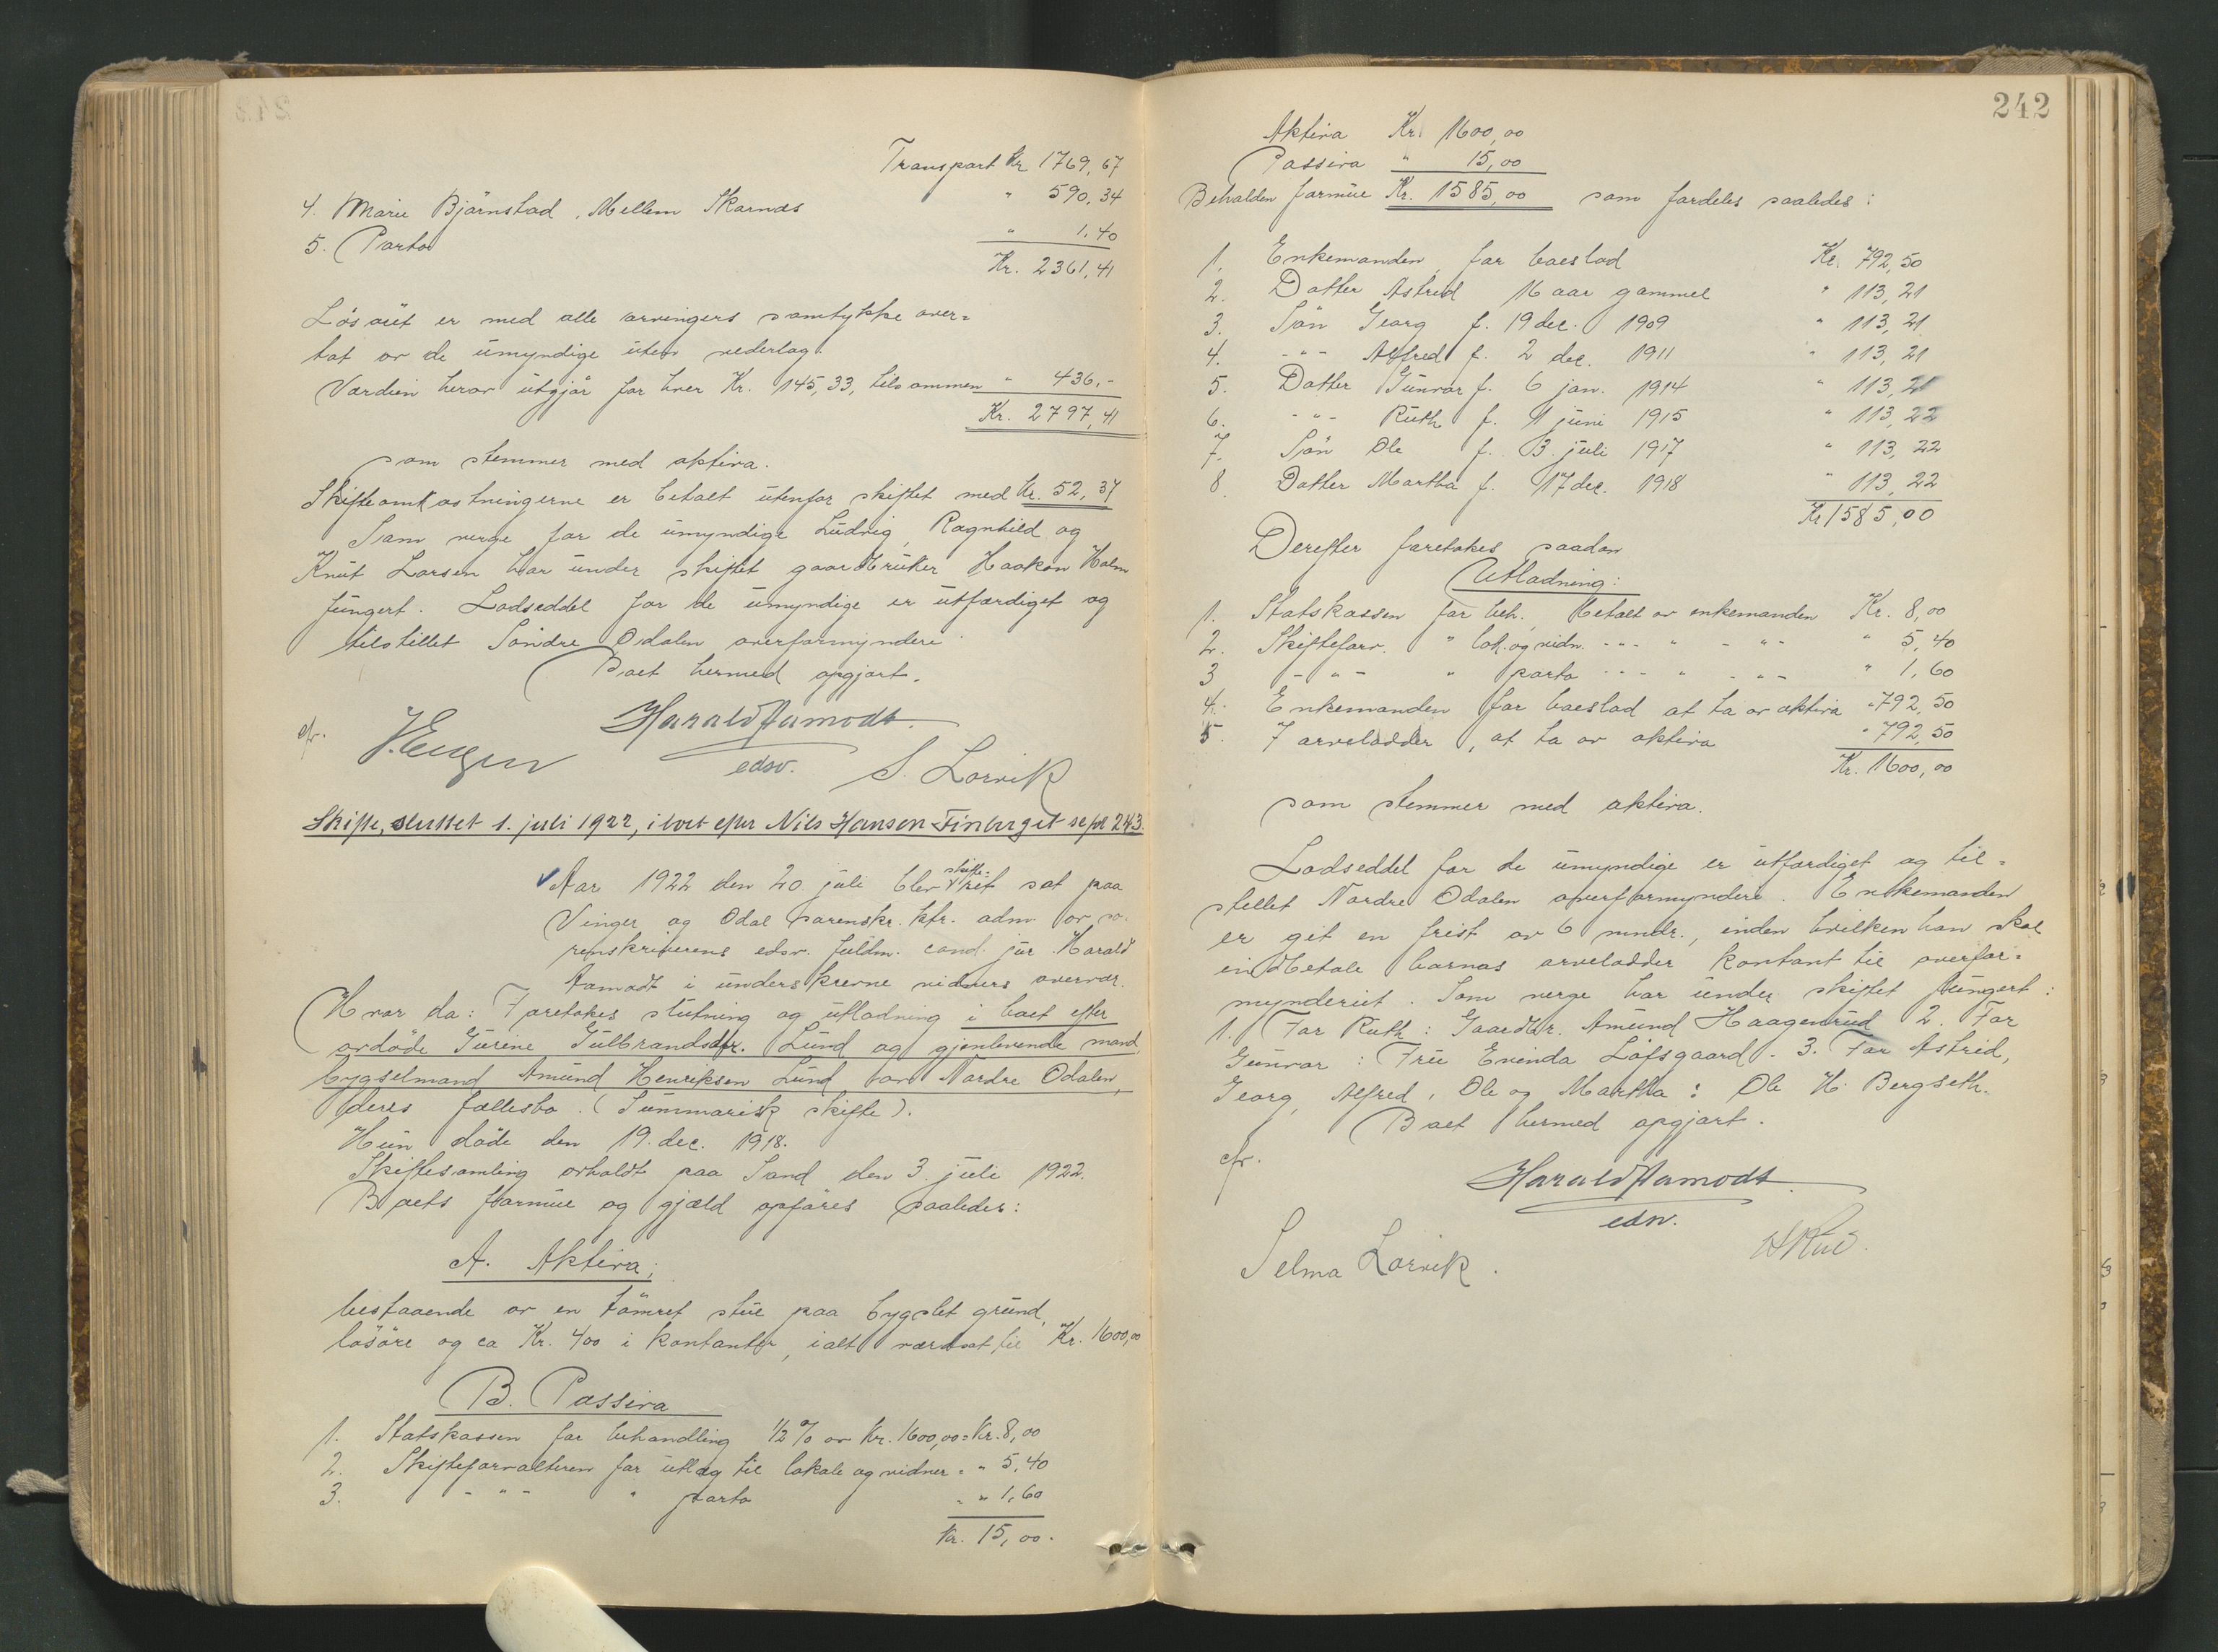 Transport Kr 1769,67
4. Marie Bjørnstad, Mellem Skarnes " 590,34
5. Porto " 1.40
Kr. 2361,41
Løsøret er med alle arvingers samtykke over=
tat av de umyndige uten vederlag.
Værdien herav utgjør for hver Kr. 145,33, tilsammen " 436,-
Kr. 2797,41
som stemmer med aktiva.
Skifteomkostningerne er betalt utenfor skiftet med Kr. 52,37
Som verge for de umyndige Ludvig, Ragnhild og
Knut Larsen har under skiftet gaardbruker Haakon Holm
fungert. Lodseddel for de umyndige er utfærdiget og
tilstillet Søndre Odalen overformynderi.
Boet hermed opgjort.
cfr. Harald Aamodt.
edsv. S. Lorvik
Skifte, sluttet 1. juli 1922, i boet efter Nils Hansen Finberget se fol 243.
Aar 1922 den 20. juli blev skifte=ret sat paa
Vinger og Odal sorenskr. ktr. adm av so-
renskriverens edsv. fuldm. cand jur Harald
Aamodt i underskrevne vidners overvær.
Hvor da: Foretokes slutning og utlodning i boet efter
avdøde Gurene Gulbrandsdtr. Lund og gjenlevende mand,
bygselmand Amund Henriksen Lund av Nordre Odalen,
deres fællesbo. (Summarisk skifte).
Hun døde den 19. dec. 1918.
Skiftesamling avholdt paa Sand den 3. juli 1922.
Boets formue og gjæld opføres saaledes:
A. Aktiva;
bestaaende av en tømret stue paa bygslet grund,
løsøre og ca Kr. 400 i kontanter, ialt værdsat til Kr. 1600,00
B. Passiva
1. Statskassen for behandling 1/2 % av Kr. 1600,00 = Kr. 8,00
2. Skifteforvalteren for utlæg til lokale og vidner = " 5,40
3. - " - " porto = " 1,60
Kr. 15,00.
242
Aktiva Kr. 1600,00
Passiva " 15,00
Beholden formue Kr. 1585,00 som fordeles saaledes:
1. Enkemanden for boeslod Kr. 792,50
2. Datter Astrid 16 aar gammel " 113,21
3. Søn Georg f. 19 dec. 1909 " 113,21
4. - " - Alfred f. 2 dec. 1911 " 113,21
5. Datter Gunvor f. 6 jan. 1914 " 113,21
6. - " - Ruth f. 1 juni 1915 " 113,22
7. Søn Ole f. 3 juli 1917 " 113,22
8. Datter Martha f. 17 dec. 1918 " 113,22
Kr 1585,00
Derefter foretokes saadan
Utlodning:
1. Statskassen for beh., betalt av enkemanden Kr. 8,00
2. Skifteforv. " lok. og vidn. - " - " - " - " 5,40
3 - " - " porto - " - " - " - " 1,60
4. Enkemanden for boeslod at ta av aktiva " 792,50
5. 7 arvelodder, at ta av aktiva " 792,50
Kr. 1600,00
som stemmer med aktiva.
Lodseddel for de umyndige er utfærdiget og til=
stillet Nordre Odalen overformynderi. Enkemanden
er git en frist av 6 mndr., inden hvilken han skal
indbetale barnas arvelodder kontant til overfor=
mynderiet. Som verge har under skiftet fungert:
1. For Ruth: Gaardbr. Amund Haagenrud 2. For
Gunvor: Fru Eveinda Løfsgaard. 3. For Astrid,
Georg, Alfred, Ole og Martha: Ole H. Bergseth.
Boet hermed opgjort.
cfr.
Harald Aamodt.
edsv.
Selma Lorvik.